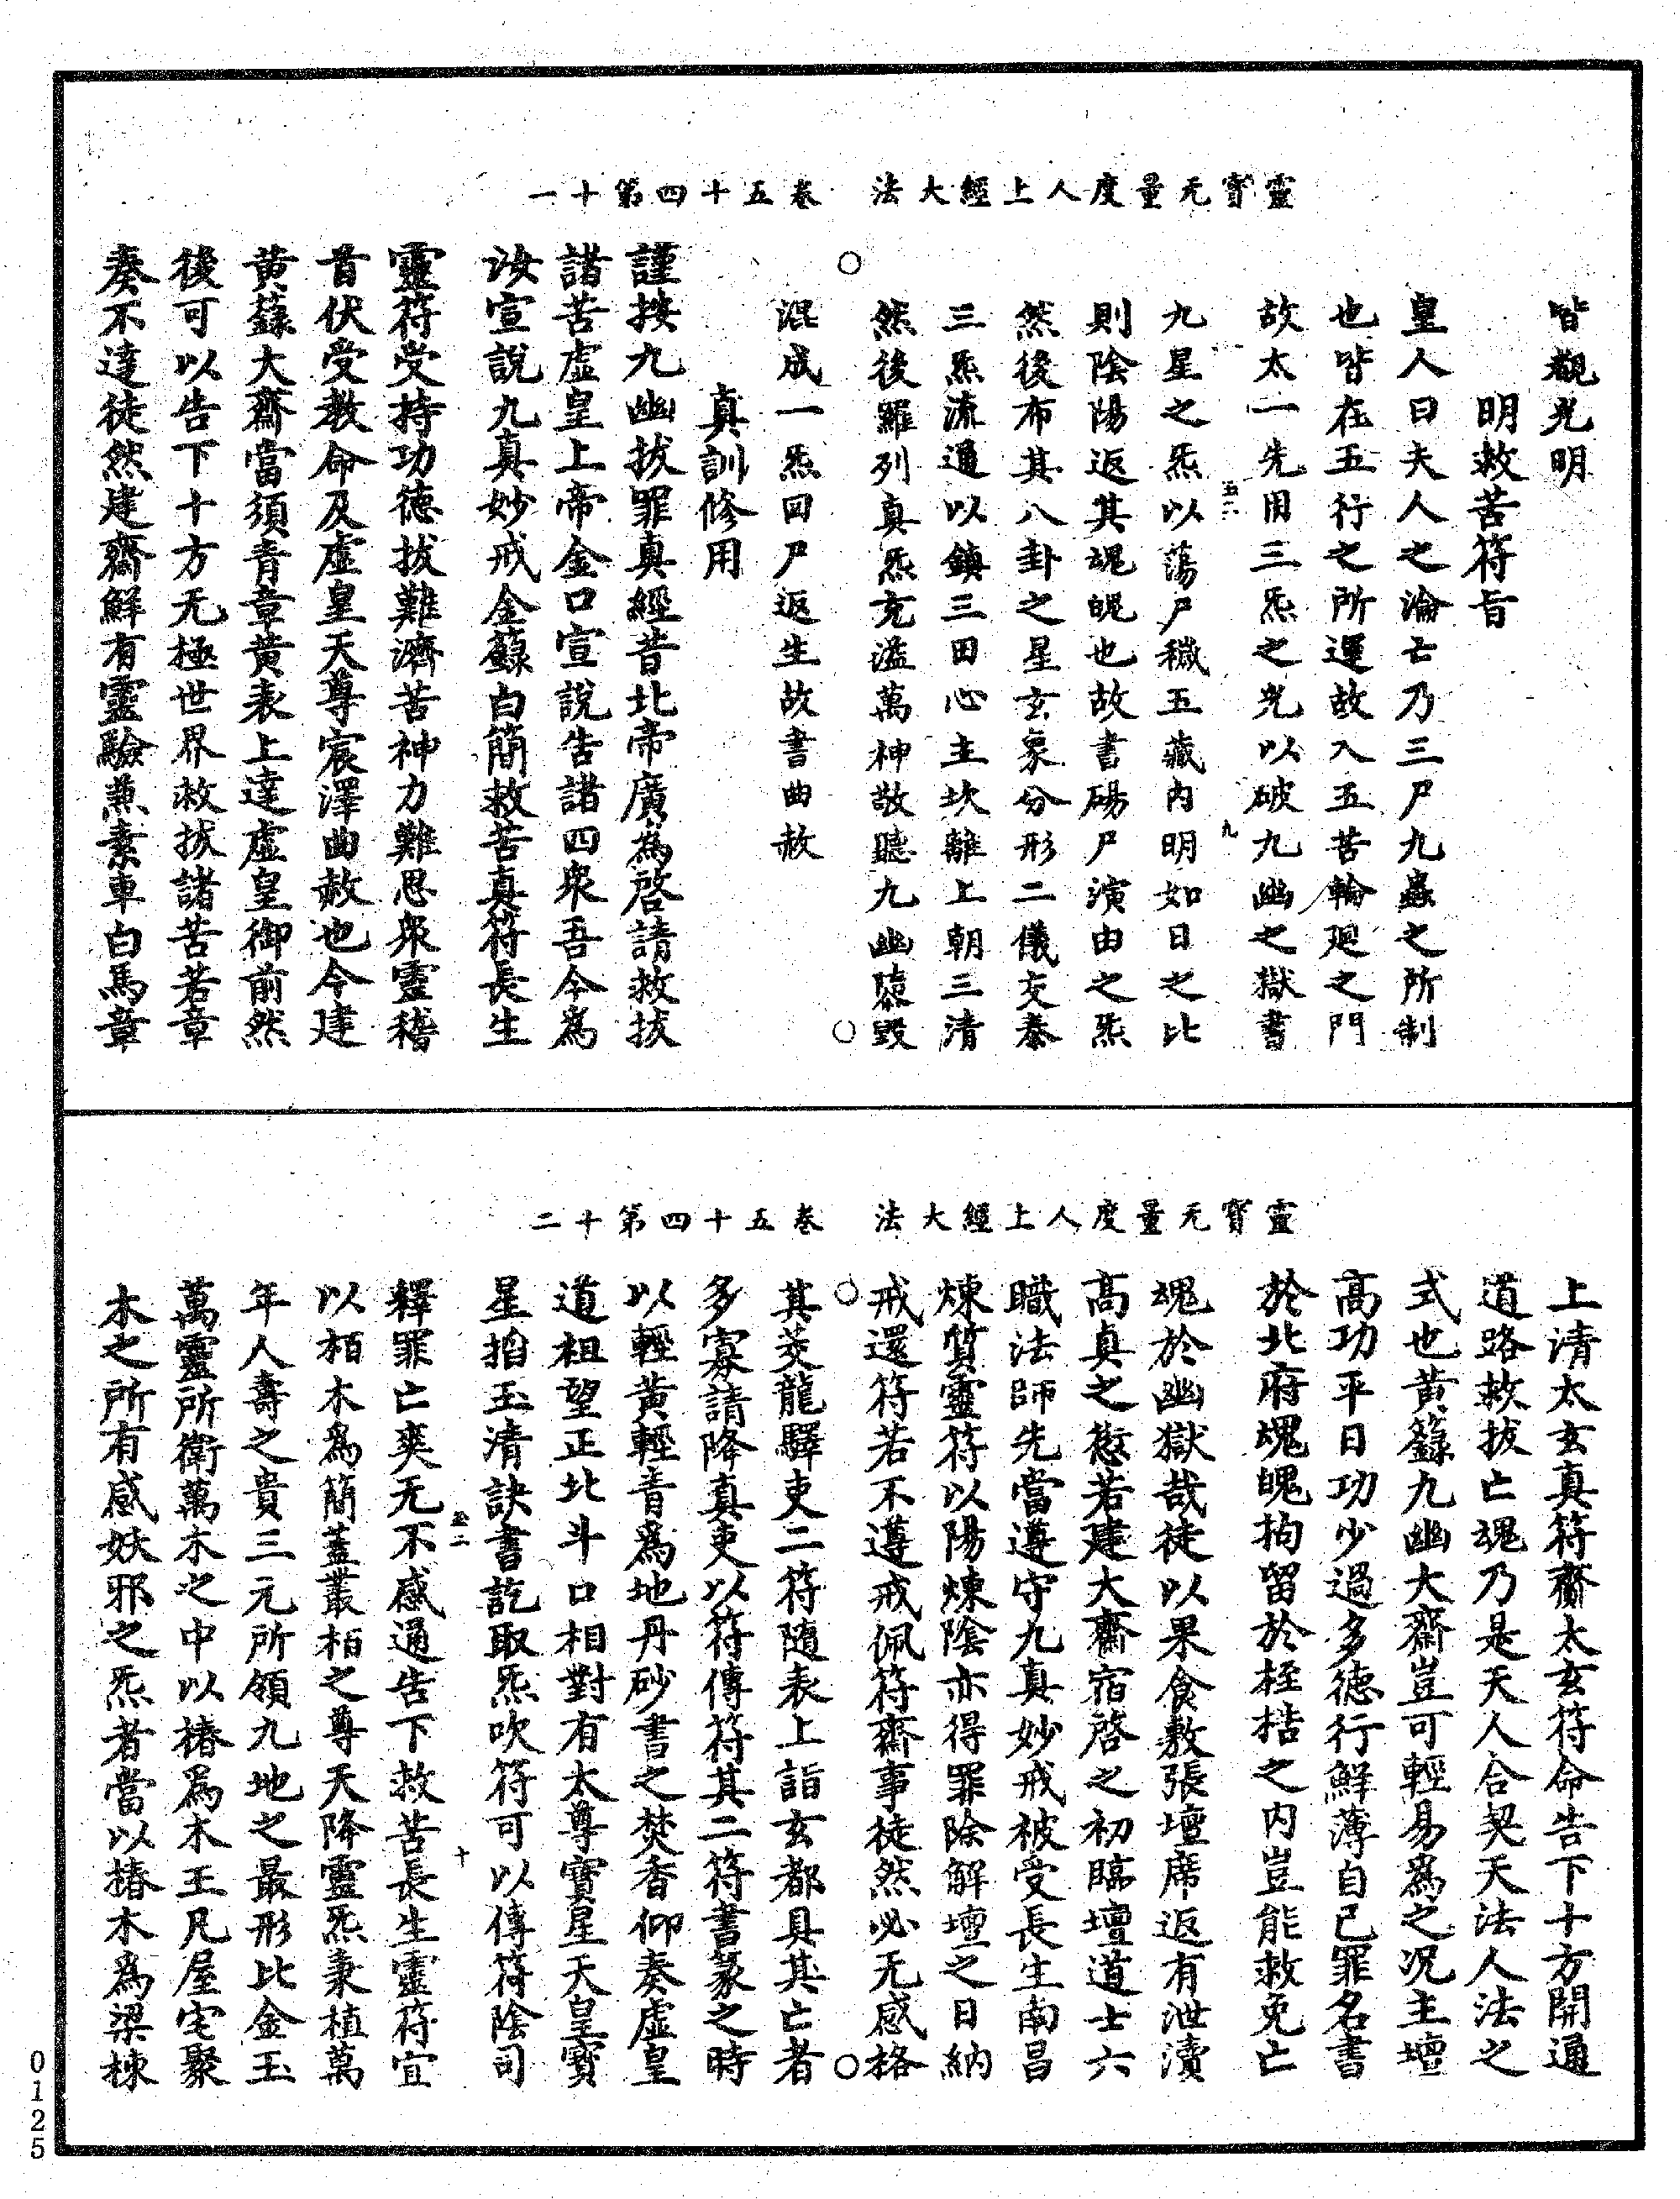 靈寳无量度人上經大法　卷五十四第十一
皆覩光明
明救苦符旨
皇人曰夫人之淪亡乃三尸九蟲之所制
也皆在五行之所運故入五苦輪廻之門
故太一先用三炁之光以破九幽之獄書
九星之炁以蕩尸穢五藏內明如日之比
則陰陽返其魂魄也故書碭尸演由之炁
然後布其八卦之星玄象分形二儀交泰
三炁流通以鎮三田心主坎離上朝三清
然後羅列真炁充溢萬神敬聽九幽隳毀
混成一炁回尸返生故書曲赦
真訓修用
謹按九幽拔罪真經昔北帝廣為啓請救拔
諸苦虛皇上帝金口宣說告諸四衆吾今為
汝宣說九真妙戒金籙白簡救苦真符長生
靈符受持功德拔難濟苦神力難思衆靈稽
首伏受教命及虛皇天尊宸澤曲赦也今建
黃籙大齋當須青章黃表上達虛皇御前然
後可以告下十方无極世界救拔諸苦若章
奏不達徒然建齋鮮有靈驗焦素車白馬章
靈寳无量度人上經大法　卷五十四第十二
上清太玄真符齋太玄符命告下十方開通
道路救拔亡魂乃是天人合契天法人法之
式也黃籙九幽大齋豈可輕易為之况主壇
高功平日功少過多德行鮮薄自已罪名書
於北府魂魄拘留於桎梏之內豈能救免亡
魂於幽獄哉徒以果食敷張壇席返有泄瀆
高真之愆若建大齋宿啓之初臨壇道士六
職法師先當遵守九真妙戒被受長生南昌
煉質靈符以陽煉陰亦得罪除解壇之日納
戒還符若不遵戒佩符齋事徒然必无感格
其茭龍驛吏二符隨表上詣玄都具其亡者
多寡請降真吏以符傳符其二符書篆之時
以輕黃輕青為地丹砂書之焚香仰奏虛皇
道祖望正北斗口相對有太尊寶星天皇寶
星掐玉清訣書訖取炁吹符可以傳符陰司
釋罪亡爽无不感通告下救苦長生靈符宜
以栢木為簡蓋叢栢之尊天降靈炁秉植萬
年人壽之貴三元所領九地之最形比金玉
萬靈所衛萬木之中以椿為木王凡屋宅聚
木之所有感妖邪之炁者當以椿木為梁棟
0125